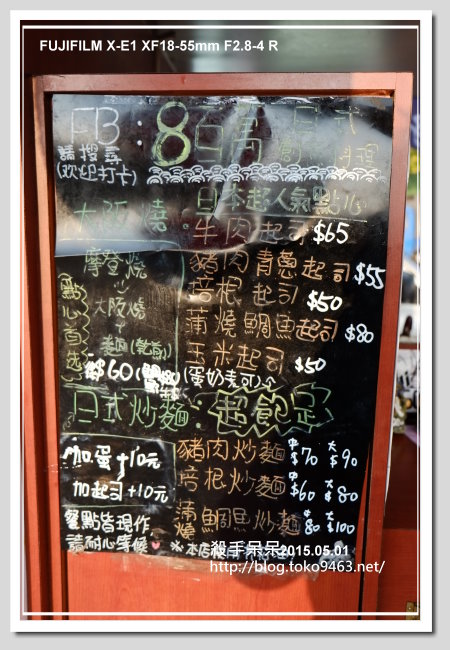 FUJIFILM X-E1 XF18-55mm F2.8-4 R
FB:8百萬日式
請搜尋
(歡迎打卡)
料理
日本超人氣點心
大阪燒:
牛肉起司$65
豬肉青蔥起司$55
培根起司$50
蒲燒鯛魚起司$80
玉米起司$50
(蛋奶素可)
點心首選
摩登燒
大阪燒
+
麵(乾煎)
$60
日式炒麵:超飽足
加蛋+10元
加起司+10元
豬肉炒麵 中$70 大$90
培根炒麵 中$60 大$80
蒲燒鯛魚炒麵 中$80 大$100
餐點皆現作
請耐心等候
※本店
殺手呆呆2015.05.01
http://blog.toko9463.net/